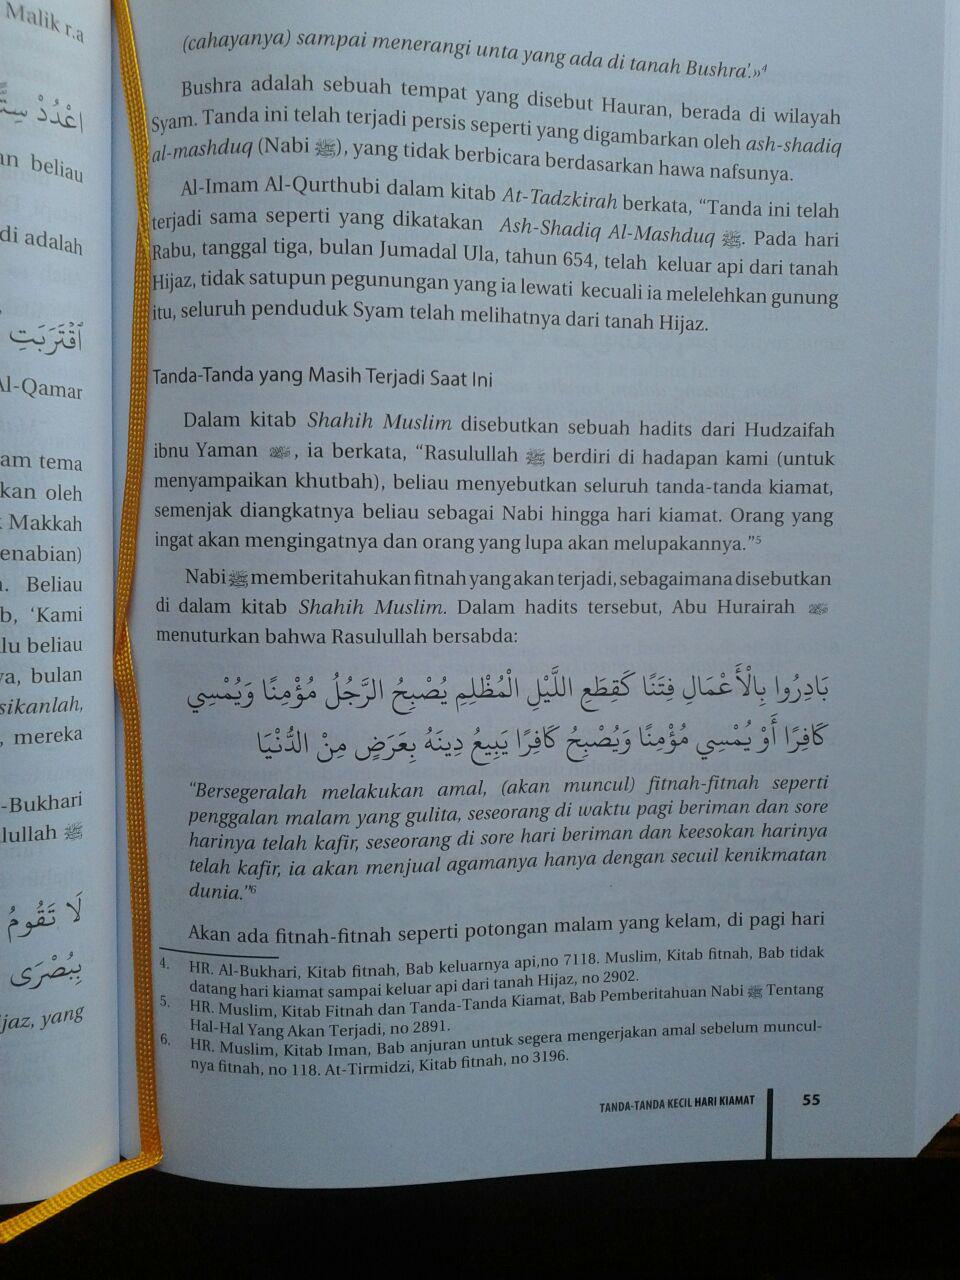 Malik r.a
اعْدُدْ
an beliau
di adalah
ٱقْتَرَبَتِ
Al-Qamar
am tema
kan oleh
Makkah
enabian)
Beliau
b, ‘Kami
lu beliau
ya, bulan
sikanlah,
, mereka
-Bukhari
lullah ﷺ
لَا تَقُومُ
بِبُصْرَى
ijaz, yang
(cahayanya) sampai menerangi unta yang ada di tanah Bushra’.»⁴
Bushra adalah sebuah tempat yang disebut Hauran, berada di wilayah
Syam. Tanda ini telah terjadi persis seperti yang digambarkan oleh ash-shadiq
al-mashduq (Nabi ﷺ), yang tidak berbicara berdasarkan hawa nafsunya.
Al-Imam Al-Qurthubi dalam kitab At-Tadzkirah berkata, “Tanda ini telah
terjadi sama seperti yang dikatakan Ash-Shadiq Al-Mashduq ﷺ. Pada hari
Rabu, tanggal tiga, bulan Jumadal Ula, tahun 654, telah keluar api dari tanah
Hijaz, tidak satupun pegunungan yang ia lewati kecuali ia melelehkan gunung
itu, seluruh penduduk Syam telah melihatnya dari tanah Hijaz.
Tanda-Tanda yang Masih Terjadi Saat Ini
Dalam kitab Shahih Muslim disebutkan sebuah hadits dari Hudzaifah
ibnu Yaman , ia berkata, “Rasulullah ﷺ berdiri di hadapan kami (untuk
menyampaikan khutbah), beliau menyebutkan seluruh tanda-tanda kiamat,
semenjak diangkatnya beliau sebagai Nabi hingga hari kiamat. Orang yang
ingat akan mengingatnya dan orang yang lupa akan melupakannya.”⁵
Nabi ﷺ memberitahukan fitnah yang akan terjadi, sebagaimana disebutkan
di dalam kitab Shahih Muslim. Dalam hadits tersebut, Abu Hurairah
menuturkan bahwa Rasulullah bersabda:
بَادِرُوا بِالْأَعْمَالِ فِتَنًا كَقِطَعِ اللَّيْلِ الْمُظْلِمِ يُصْبِحُ الرَّجُلُ مُؤْمِنًا وَيُمْسِي
كَافِرًا أَوْ يُمْسِي مُؤْمِنًا وَيُصْبِحُ كَافِرًا يَبِيعُ دِينَهُ بِعَرَضٍ مِنْ الدُّنْيَا
“Bersegeralah melakukan amal, (akan muncul) fitnah-fitnah seperti
penggalan malam yang gulita, seseorang di waktu pagi beriman dan sore
harinya telah kafir, seseorang di sore hari beriman dan keesokan harinya
telah kafir, ia akan menjual agamanya hanya dengan secuil kenikmatan
dunia.”⁶
Akan ada fitnah-fitnah seperti potongan malam yang kelam, di pagi hari
4. HR. Al-Bukhari, Kitab fitnah, Bab keluarnya api,no 7118. Muslim, Kitab fitnah, Bab tidak
datang hari kiamat sampai keluar api dari tanah Hijaz, no 2902.
5. HR. Muslim, Kitab Fitnah dan Tanda-Tanda Kiamat, Bab Pemberitahuan Nabi ﷺ Tentang
Hal-Hal Yang Akan Terjadi, no 2891.
6. HR. Muslim, Kitab Iman, Bab anjuran untuk segera mengerjakan amal sebelum muncul-
nya fitnah, no 118. At-Tirmidzi, Kitab fitnah, no 3196.
TANDA-TANDA KECIL HARI KIAMAT 55